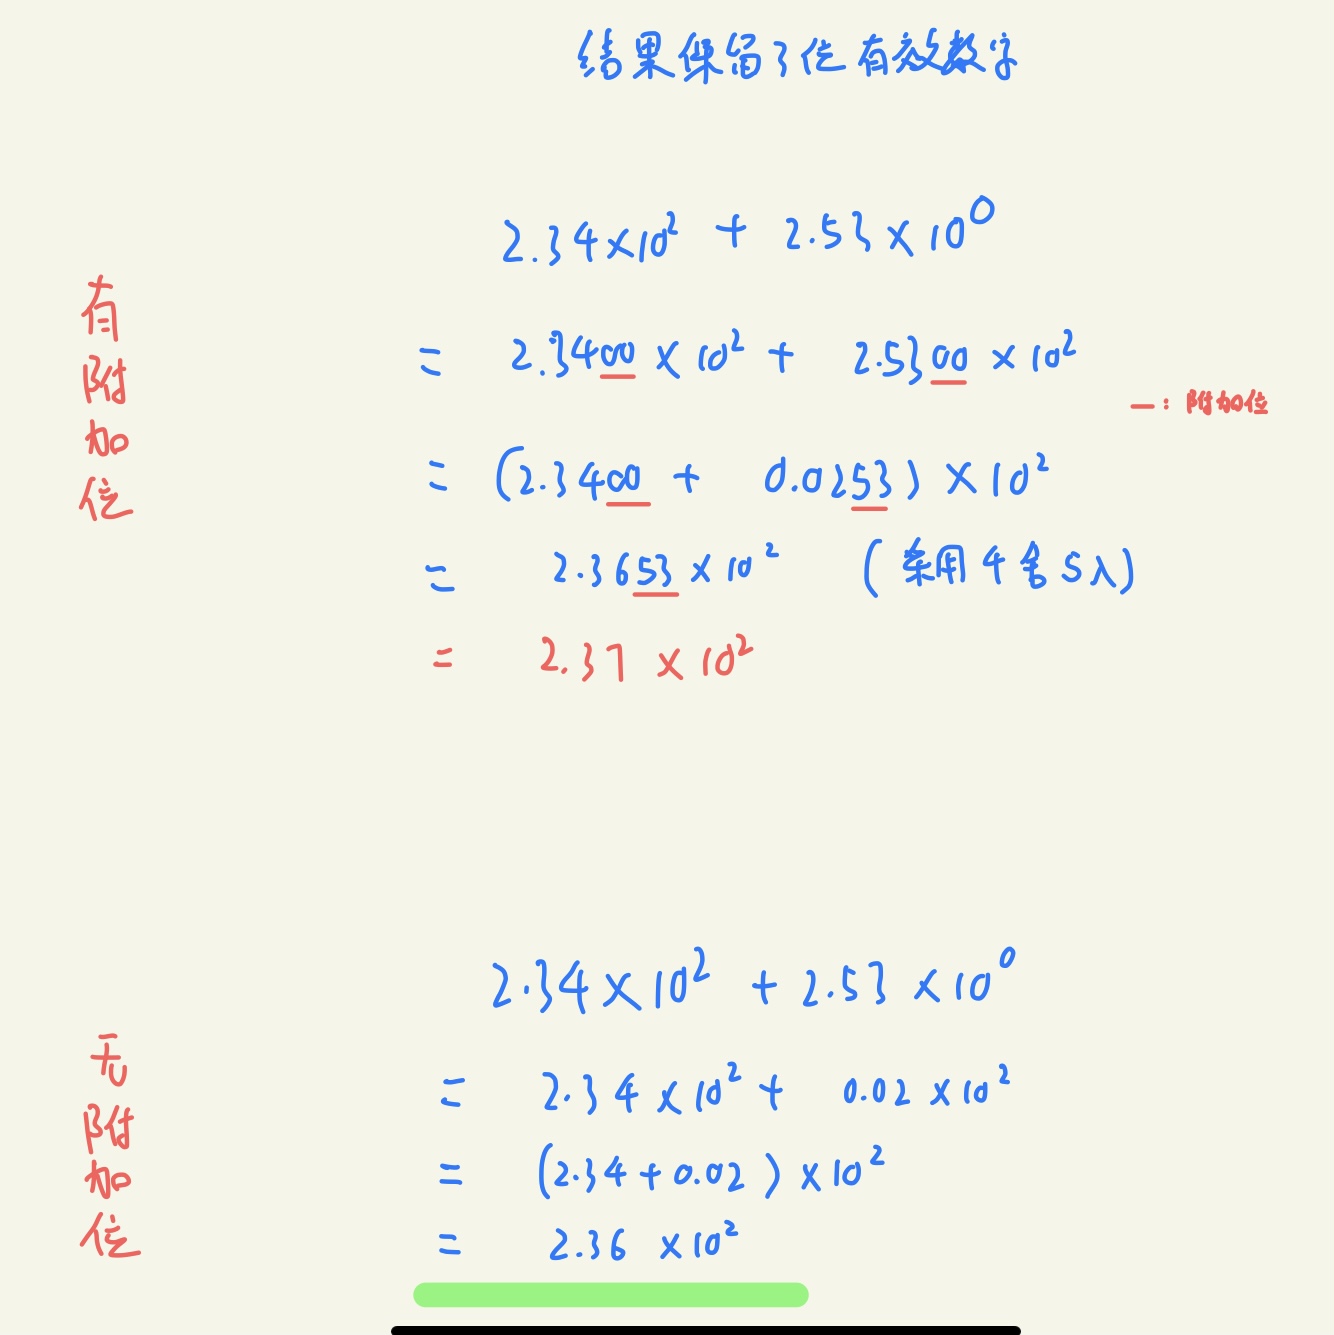 结果保留3位有效数字
2.34×10² + 2.53×10⁰
有附加位
= 2.3400×10² + 2.5300×10²
—：附加位
= (2.3400 + 0.0253)×10²
= 2.3653×10² (采用4舍5入)
= 2.37×10²
2.34×10² + 2.53×10⁰
无附加位
= 2.34×10² + 0.02×10²
= (2.34+0.02)×10²
= 2.36×10²